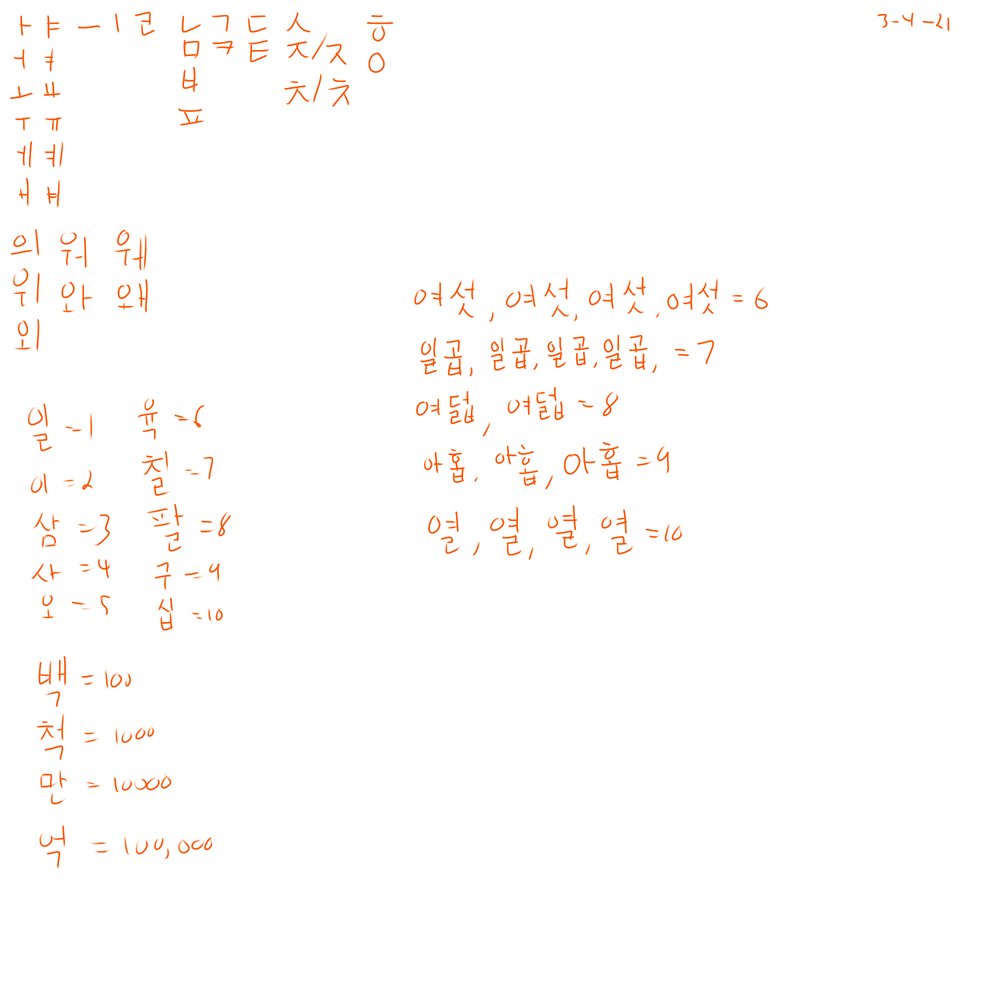 ㅏ ㅑ ㅡ ㅣ ㄹ ㄴ ㄱ ㄷ ㅅ ㅎ 3-4-21
ㅓ ㅕ ㅁ ㅋ ㅌ ㅈ/ㅈ ㅇ
ㅗ ㅛ ㅂ ㅊ/ㅊ
ㅜ ㅠ ㅍ
ㅔ ㅖ
ㅐ ㅒ
의 워 웨
위 와 왜
외
여섯, 여섯, 여섯, 여섯 = 6
일곱, 일곱, 일곱, 일곱, = 7
여덟, 여덟 = 8
아홉, 아홉, 아홉 = 9
열, 열, 열, 열 = 10
일 = 1 육 = 6
이 = 2 칠 = 7
삼 = 3 팔 = 8
사 = 4 구 = 9
오 = 5 십 = 10
백 = 100
척 = 1000
만 = 10000
억 = 100,000